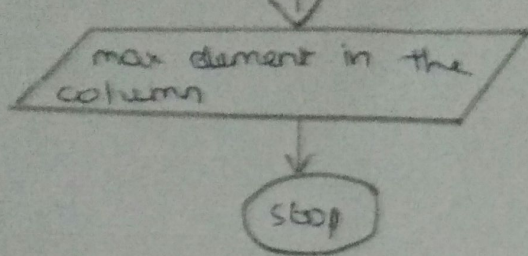 max element in the
column
stop